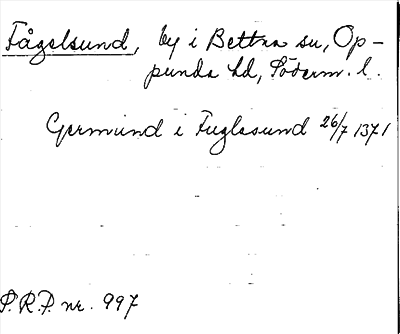 Fågelsund, by i Bettna sn, Op-
punda hd, Söderm. l.
Germund i Fuglasund 26/7 1371
S.R.P. nr. 997